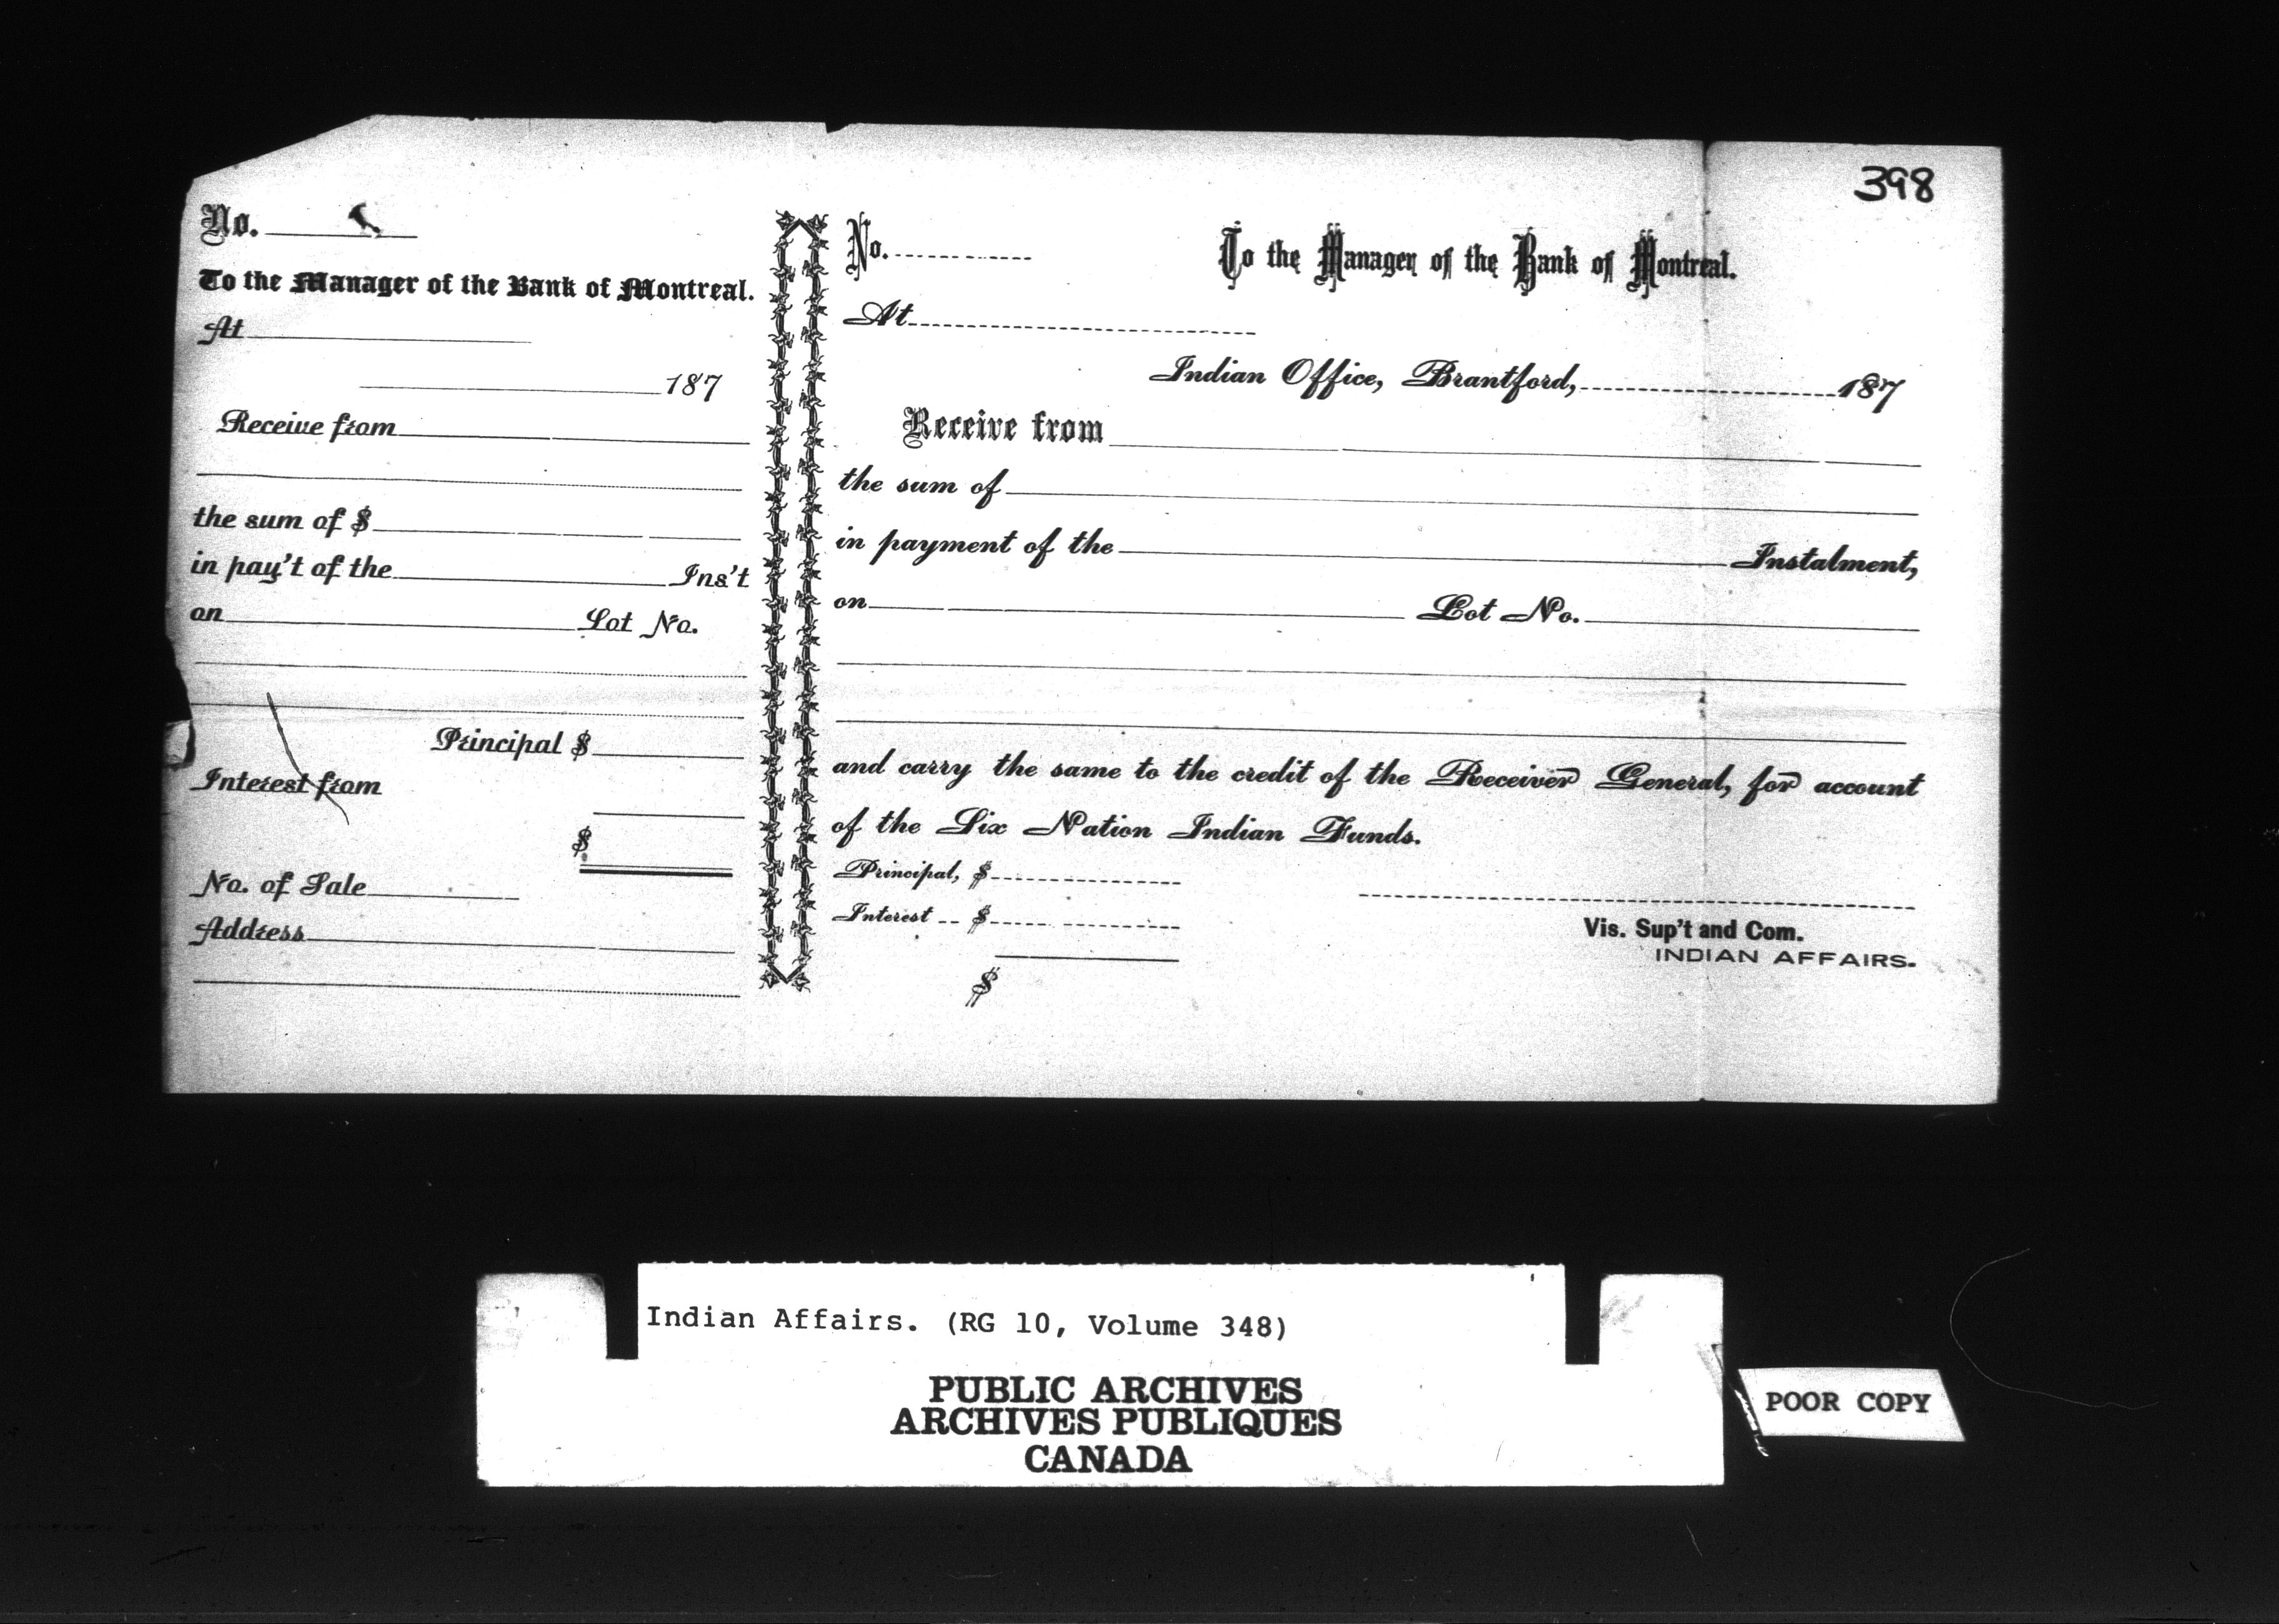 398
No.
To the Manager of the Bank of Montreal.
At
187
Receive from
the sum of $
in pay't of the Ins't
on Lot No.
Principal $
Interest from
$
No. of Sale
Address
No. To the Manager of the Bank of Montreal.
At
Indian Office, Brantford, 187
Receive from
the sum of
in payment of the Instalment,
on Lot No.
and carry the same to the credit of the Receiver General, for account
of the Six Nation Indian Funds.
Principal, $
Interest $
$
Vis. Sup't and Com.
INDIAN AFFAIRS.
Indian Affairs. (RG 10, Volume 348)
PUBLIC ARCHIVES
ARCHIVES PUBLIQUES
CANADA
POOR COPY